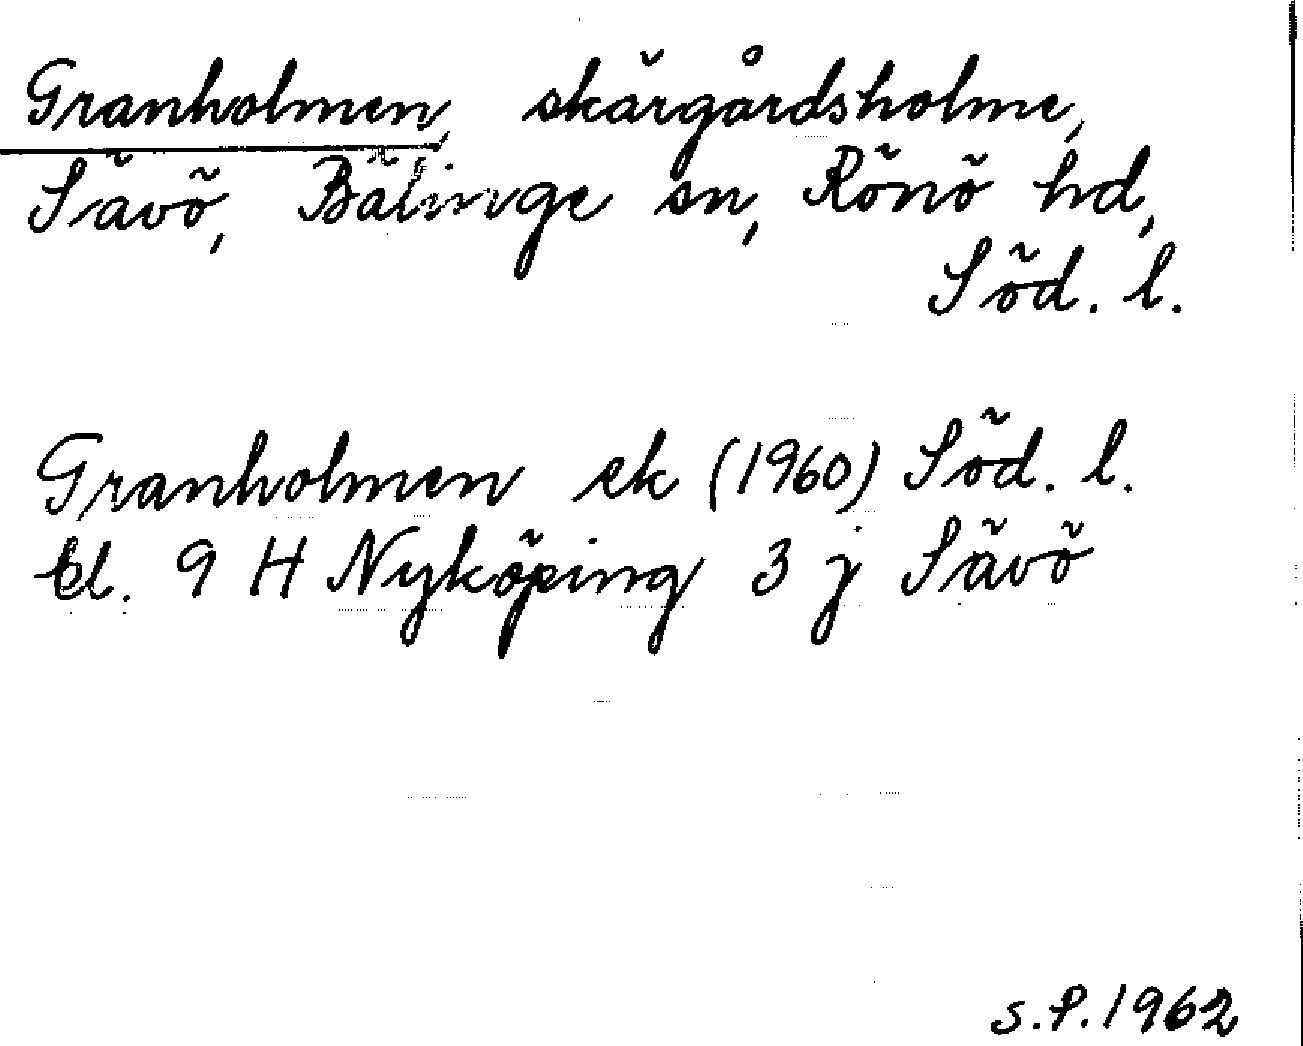 Granholmen, skärgårdsholme,
Sävö, Bälinge sn, Rönö hd,
Söd. l.
Granholmen ek (1960) Söd. l.
bl. 9 H Nyköping 3 j Sävö
S.P. 1962